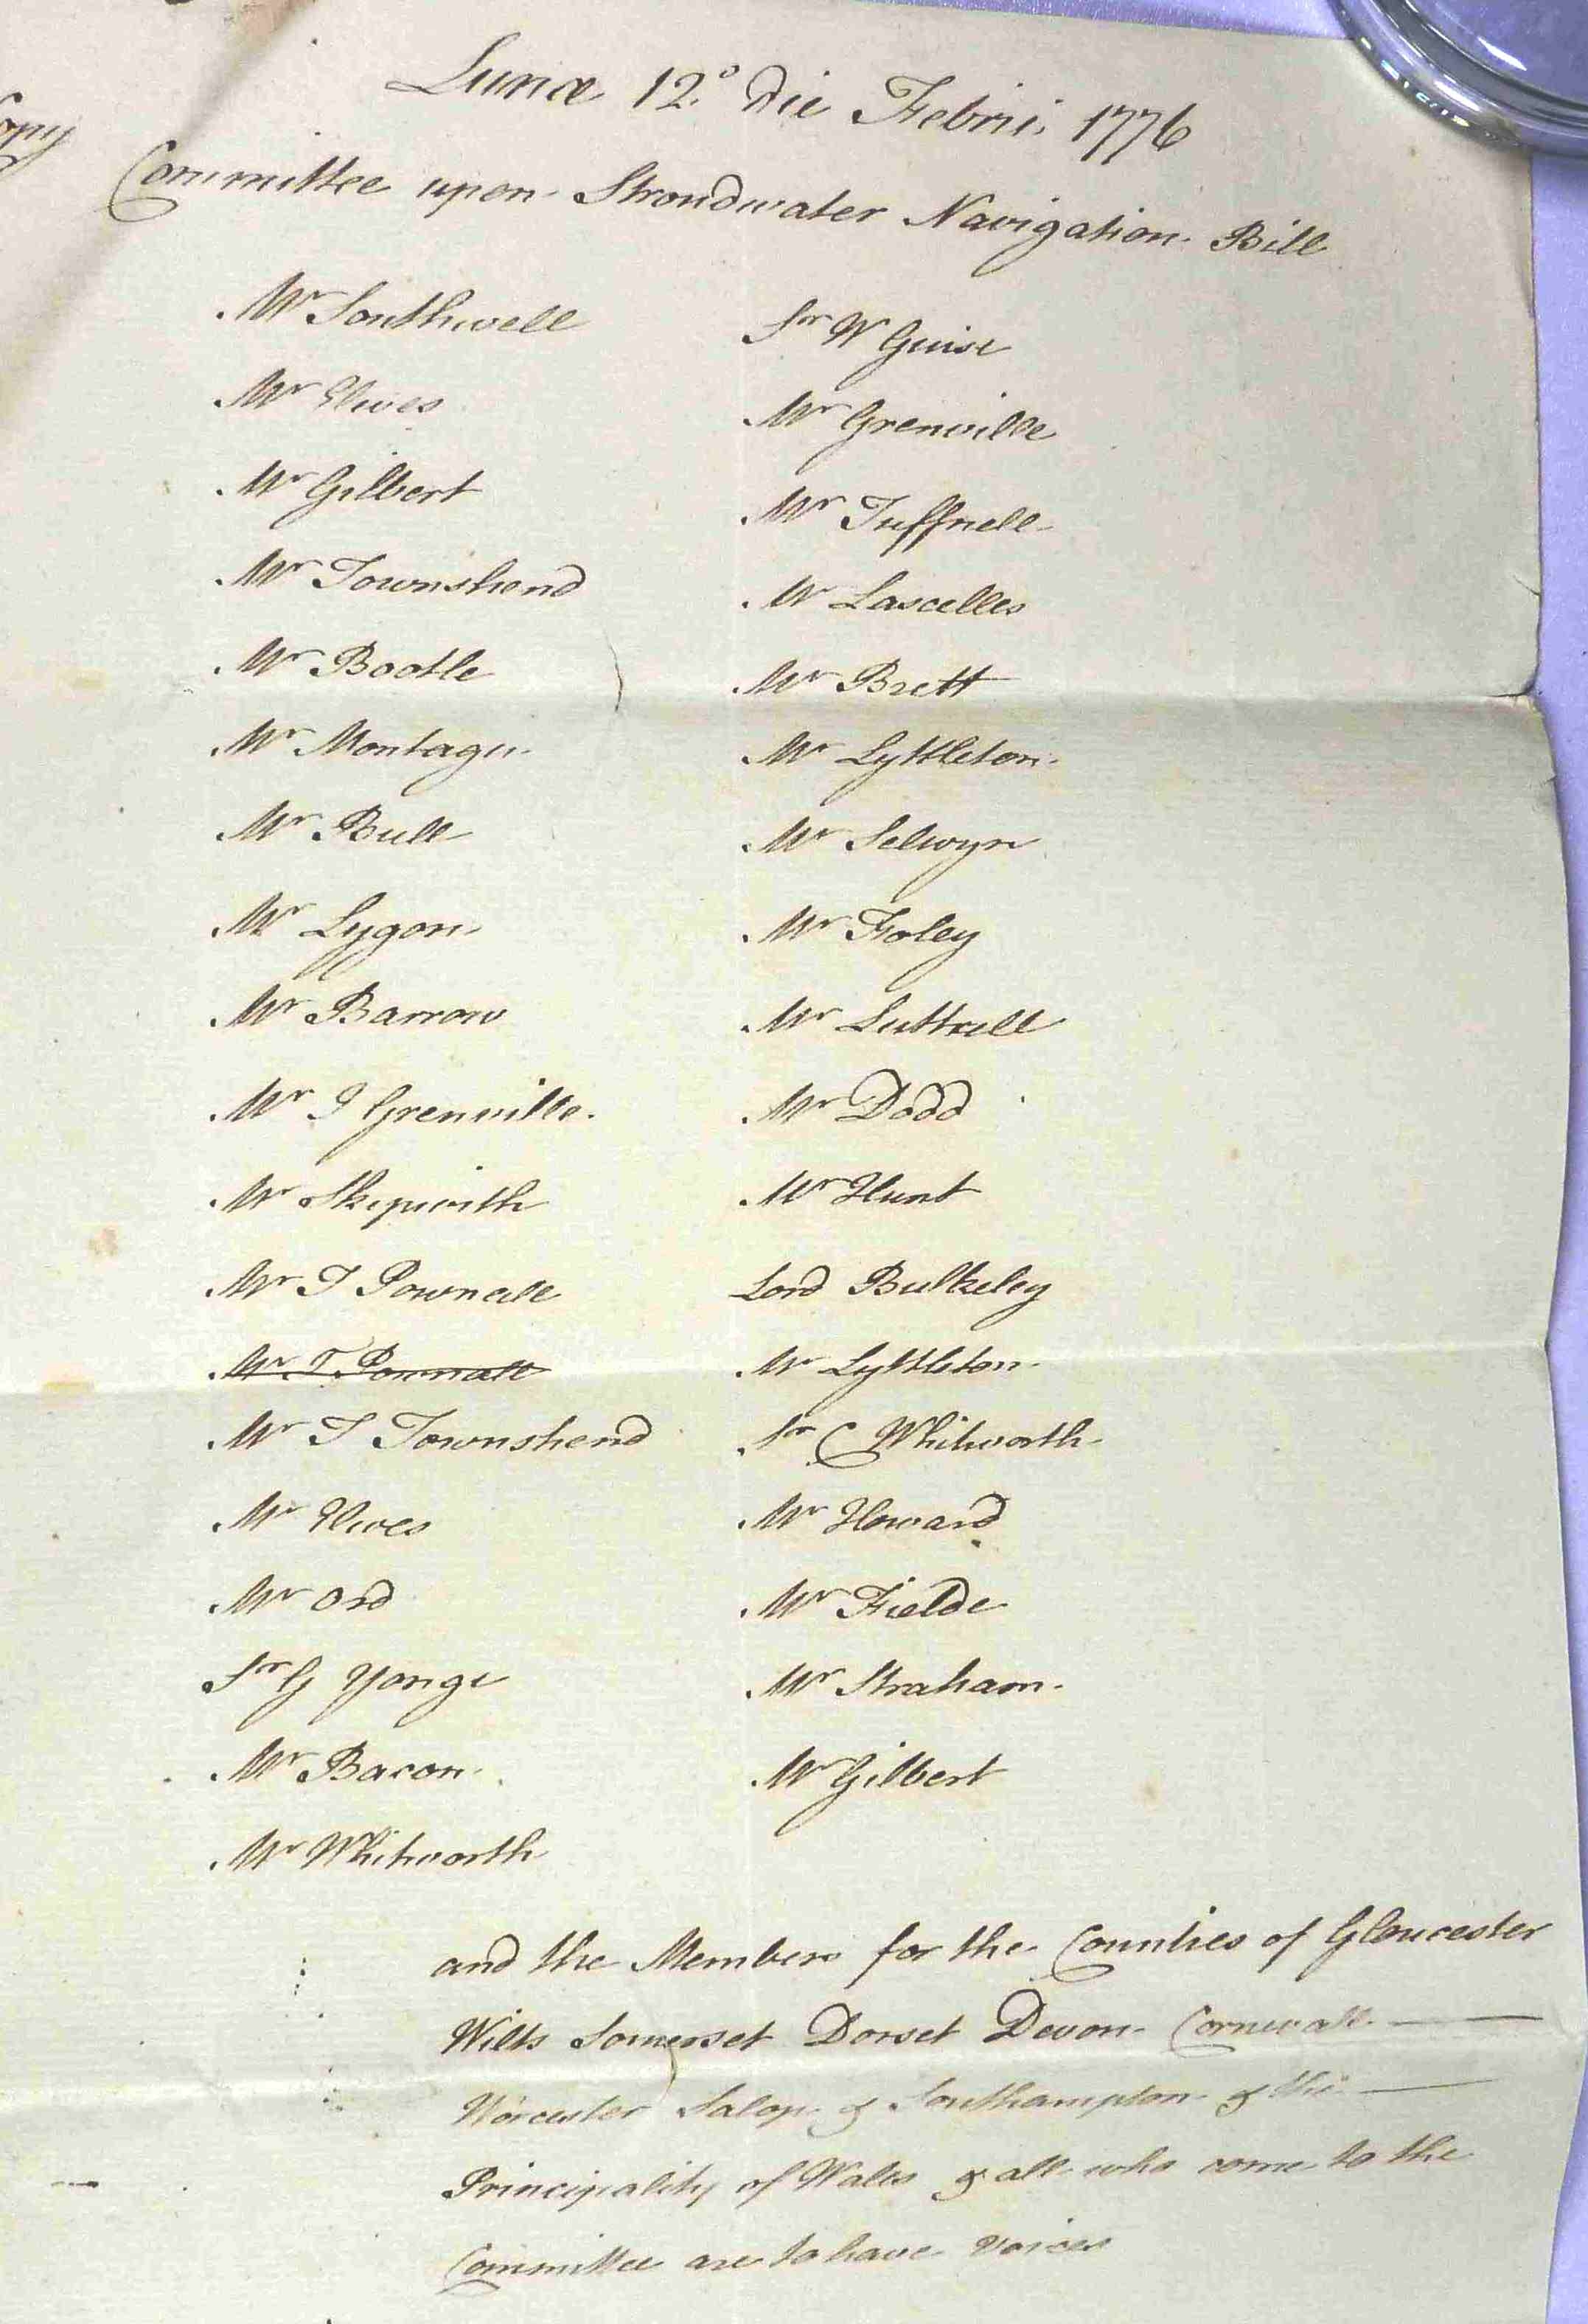 Lunæ 12.° die Febrii. 1776
Committee upon Stroudwater Navigation Bill
Mr Southwell
Mr Elwes
Mr Gilbert
Mr Townshend
Mr Bootle
Mr Montagu
Mr Bull
Mr Lygon
Mr Barrow
Mr J Grenville
Mr Skipwith
Mr T Pownall
Mr T Pownall
Mr T Townshend
Mr Elwes
Mr Ord
Sr G Yonge
Mr Bacon
Mr Whitworth
Sr W Guise
Mr Grenville
Mr Tuffnell
Mr Lascelles
Mr Brett
Mr Lyttleton
Mr Selwyn
Mr Foley
Mr Luttrell
Mr Dodd
Mr Hunt
Lord Bulkeley
Mr Lyttleton
Sr C Whitworth
Mr Howard
Mr Fielde
Mr Straham
Mr Gilbert
and the Members for the Counties of Gloucester
Wilts Somerset Dorset Devon Cornwall
Worcester Salop & Southampton & the
Principality of Wales & all who come to the
Committee are to have Voices